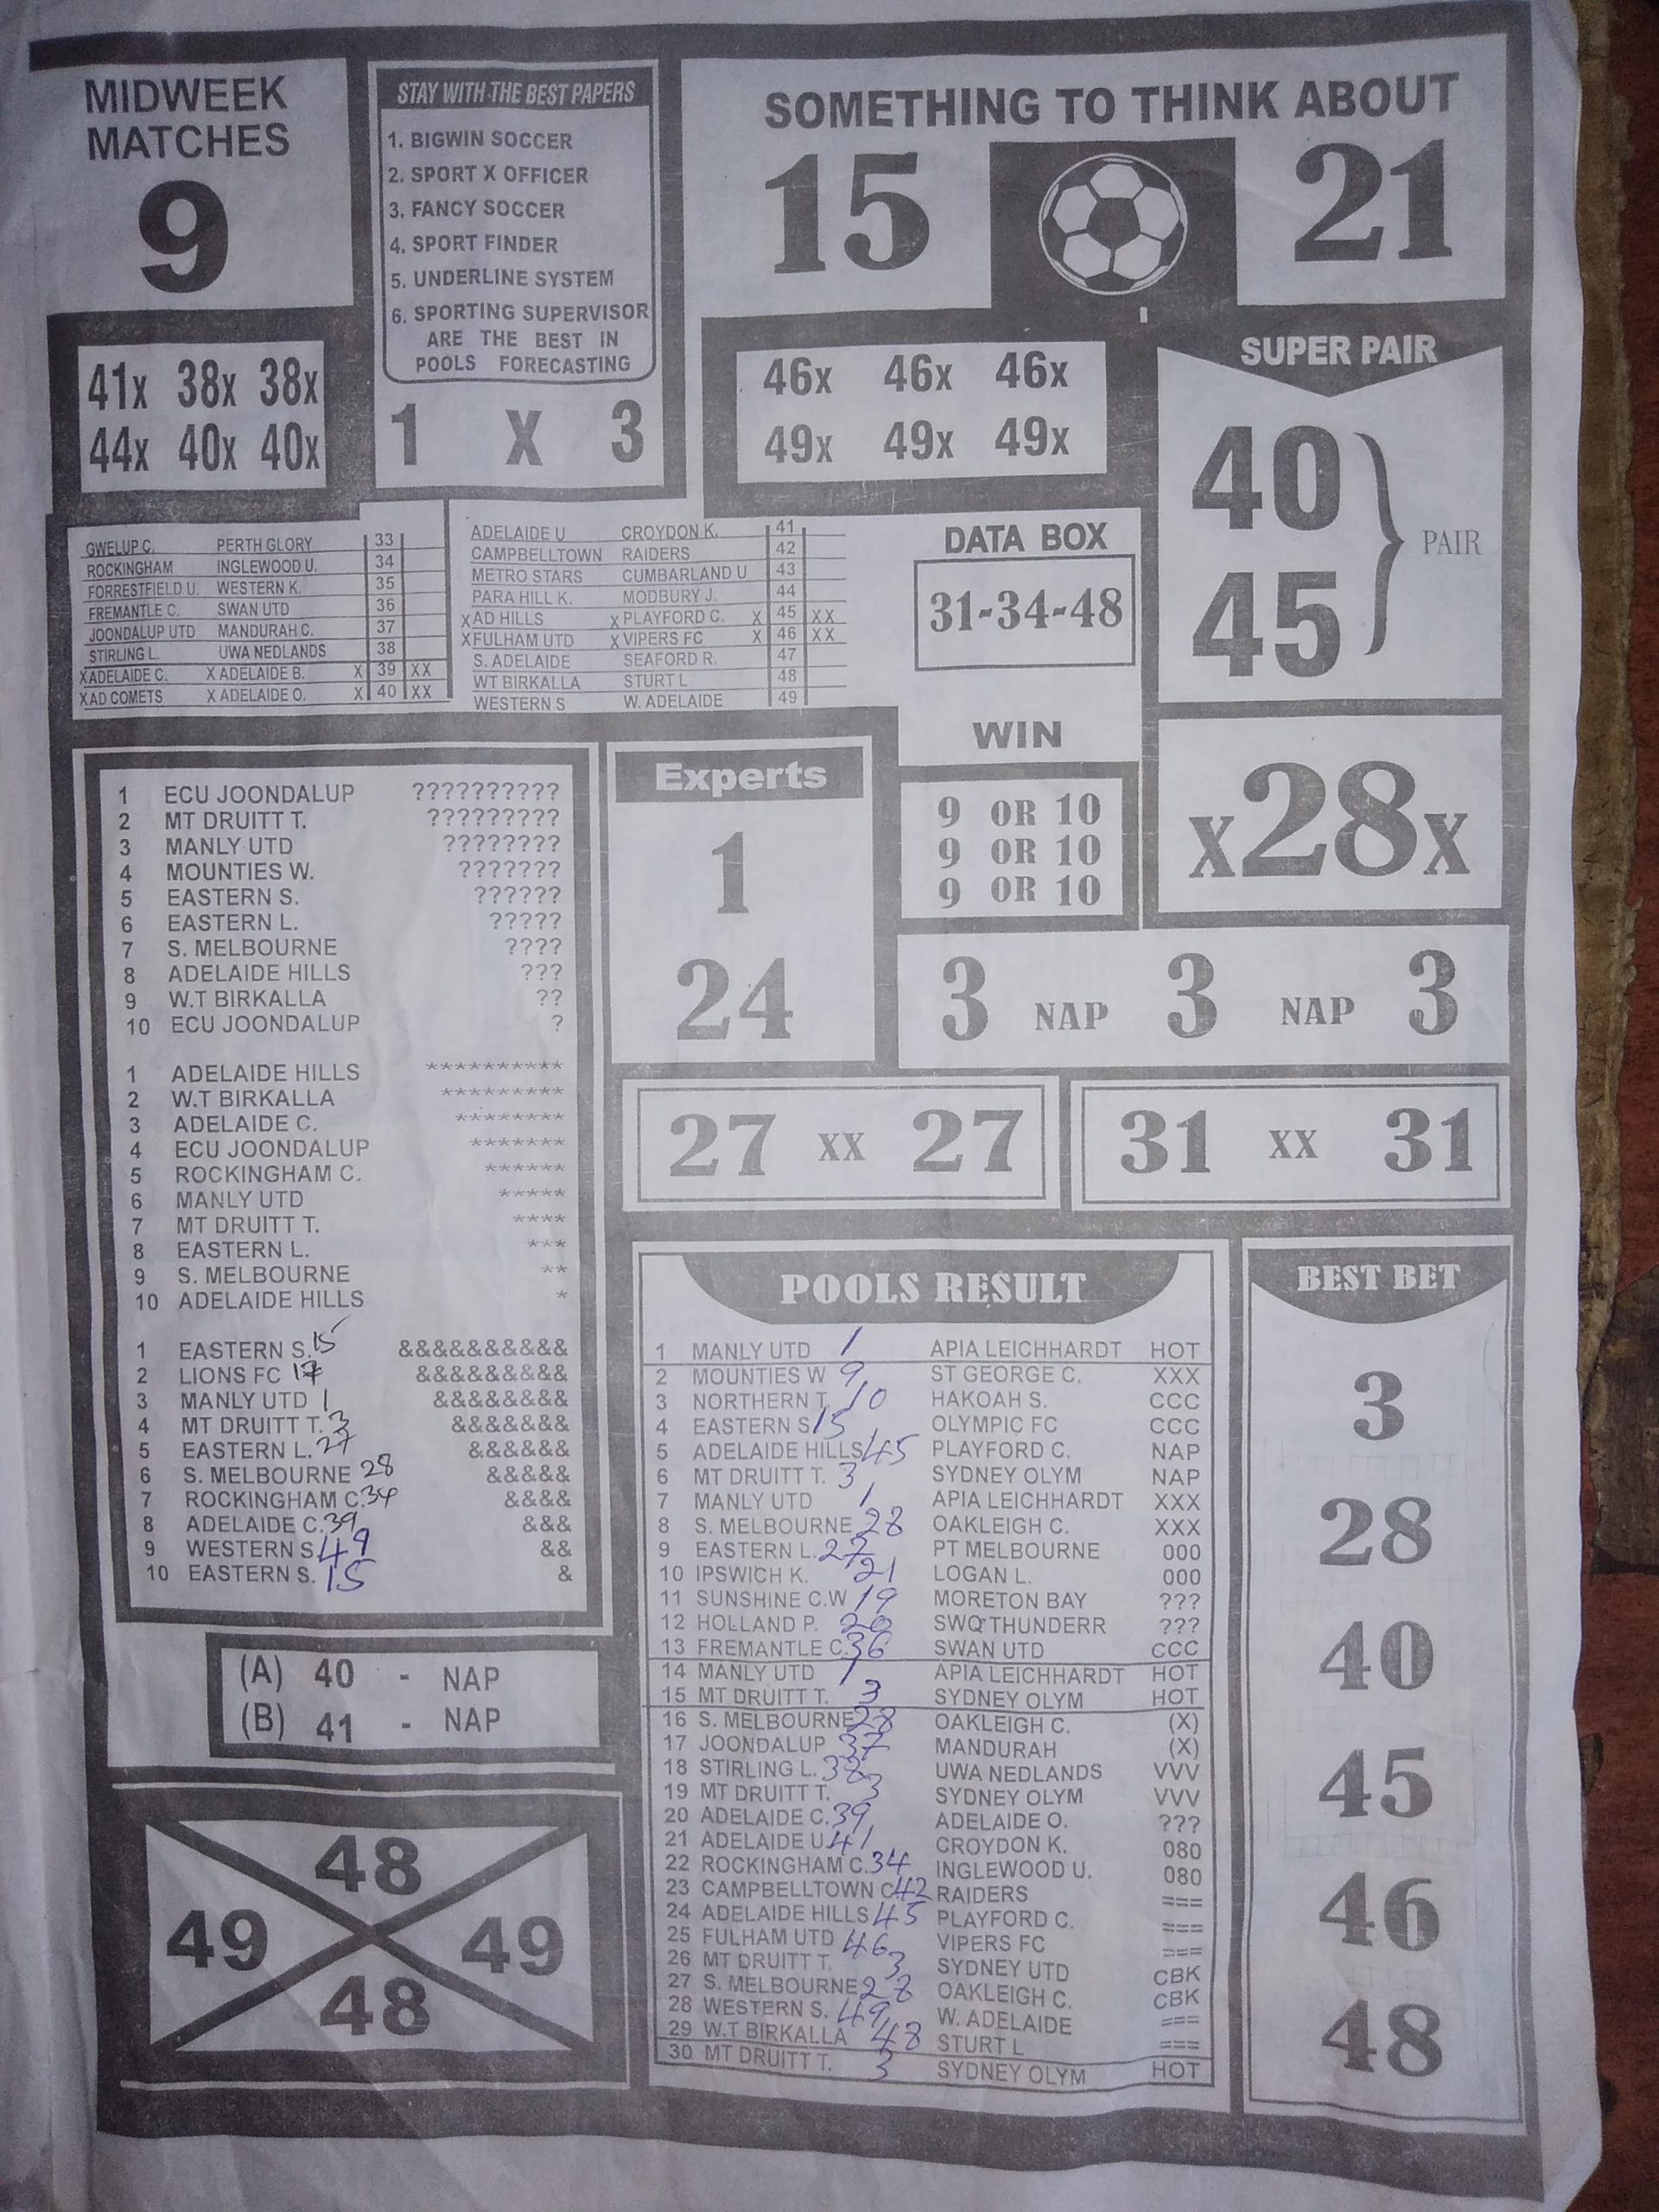 MIDWEEK
MATCHES
9
41x 38x 38x
44x 40x 40x
STAY WITH THE BEST PAPERS
1. BIGWIN SOCCER
2. SPORT X OFFICER
3. FANCY SOCCER
4. SPORT FINDER
5. UNDERLINE SYSTEM
6. SPORTING SUPERVISOR
ARE THE BEST IN
POOLS FORECASTING
1 X 3
SOMETHING TO THINK ABOUT
15 21
46x 46x 46x
49x 49x 49x
SUPER PAIR
40
45
PAIR
GWELUP C. PERTH GLORY 33
ROCKINGHAM INGLEWOOD U. 34
FORRESTFIELD U. WESTERN K. 35
FREMANTLE C. SWAN UTD 36
JOONDALUP UTD MANDURAH C. 37
STIRLING L. UWA NEDLANDS 38
XADELAIDE C. X ADELAIDE B. X 39 XX
XAD COMETS X ADELAIDE O. X 40 XX
ADELAIDE U CROYDON K. 41
CAMPBELLTOWN RAIDERS 42
METRO STARS CUMBARLAND U 43
PARA HILL K. MODBURY J. 44
XAD HILLS X PLAYFORD C. X 45 XX
XFULHAM UTD X VIPERS FC X 46 XX
S. ADELAIDE SEAFORD R. 47
WT BIRKALLA STURT L 48
WESTERN S W. ADELAIDE 49
DATA BOX
31-34-48
WIN
9 OR 10
9 OR 10
9 OR 10
X28X
1 ECU JOONDALUP ??????????
2 MT DRUITT T. ?????????
3 MANLY UTD ????????
4 MOUNTIES W. ???????
5 EASTERN S. ??????
6 EASTERN L. ?????
7 S. MELBOURNE ????
8 ADELAIDE HILLS ???
9 W.T BIRKALLA ??
10 ECU JOONDALUP ?
1 ADELAIDE HILLS **********
2 W.T BIRKALLA *********
3 ADELAIDE C. ********
4 ECU JOONDALUP *******
5 ROCKINGHAM C. ******
6 MANLY UTD *****
7 MT DRUITT T. ****
8 EASTERN L. ***
9 S. MELBOURNE **
10 ADELAIDE HILLS *
1 EASTERN S. 15 &&&&&&&&&&
2 LIONS FC 17 &&&&&&&&&
3 MANLY UTD 1 &&&&&&&&
4 MT DRUITT T. 3 &&&&&&&
5 EASTERN L. 27 &&&&&&
6 S. MELBOURNE 28 &&&&&
7 ROCKINGHAM C. 34 &&&&
8 ADELAIDE C. 39 &&&
9 WESTERN S 49 &&
10 EASTERN S. 15 &
Experts
1
24
3 NAP 3 NAP 3
27 XX 27
31 XX 31
(A) 40 - NAP
(B) 41 - NAP
48
49 49
48
POOLS RESULT
1 MANLY UTD 1 APIA LEICHHARDT HOT
2 MOUNTIES W 9 ST GEORGE C. XXX
3 NORTHERN T. 10 HAKOAH S. CCC
4 EASTERN S 15 OLYMPIC FC CCC
5 ADELAIDE HILLS 45 PLAYFORD C. NAP
6 MT DRUITT T. 3 SYDNEY OLYM NAP
7 MANLY UTD 1 APIA LEICHHARDT XXX
8 S. MELBOURNE 28 OAKLEIGH C. XXX
9 EASTERN L. 27 PT MELBOURNE 000
10 IPSWICH K. 21 LOGAN L. 000
11 SUNSHINE C.W 19 MORETON BAY ???
12 HOLLAND P. 20 SWQ THUNDERR ???
13 FREMANTLE C. 36 SWAN UTD CCC
14 MANLY UTD 1 APIA LEICHHARDT HOT
15 MT DRUITT T. 3 SYDNEY OLYM HOT
16 S. MELBOURNE 28 OAKLEIGH C. (X)
17 JOONDALUP 37 MANDURAH (X)
18 STIRLING L. 38 UWA NEDLANDS VVV
19 MT DRUITT T. 3 SYDNEY OLYM VVV
20 ADELAIDE C. 39 ADELAIDE O. ???
21 ADELAIDE U 41 CROYDON K. 080
22 ROCKINGHAM C. 34 INGLEWOOD U. 080
23 CAMPBELLTOWN C 42 RAIDERS ===
24 ADELAIDE HILLS 45 PLAYFORD C. ===
25 FULHAM UTD 46 VIPERS FC ===
26 MT DRUITT T. 3 SYDNEY UTD CBK
27 S. MELBOURNE 28 OAKLEIGH C. CBK
28 WESTERN S. 49 W. ADELAIDE ===
29 W.T BIRKALLA 48 STURT L ===
30 MT DRUITT T. 3 SYDNEY OLYM HOT
BEST BET
3
28
40
45
46
48